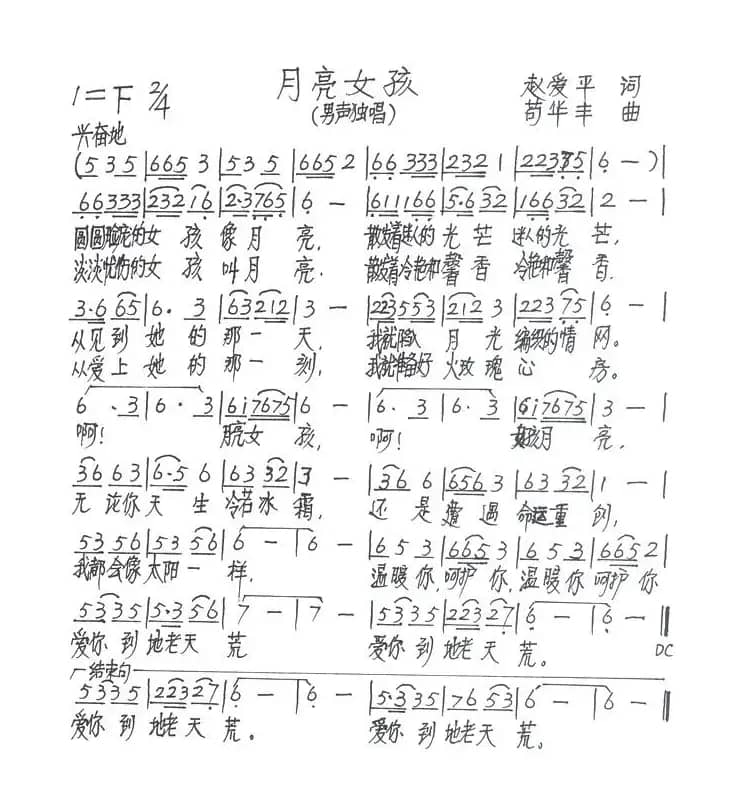 月亮女孩
(男声独唱)
1=F 2/4
赵爱平 词
苟华丰 曲
兴奋地
(535|6653|535|6652|66333|2321|22375|6-)|
66333|23216|23765|6-|611166|5·632|16632|2-|
圆圆脸庞的女孩像月亮, 散发着迷人的光芒 迷人的光芒,
淡淡忧伤的女孩叫月亮. 散发着冷艳和馨香 冷艳和馨香.
3·665|6·3|63212|3-|223553|2123|22375|6-|
从见到她的那一天, 我就陷入月光编织的情网。
从爱上她的那一刻, 我就准备好火玫瑰心房。
6·3|6·3|6i7675|6-|6·3|6·3|6i7675|3-|
啊! 月亮女孩, 啊! 女孩月亮,
3663|6·56|6332|3-|366|6563|6332|1-|
无论你天生冷若冰霜, 还是遭遇命运重创,
5356|5356|6-|6-|653|6653|653|6652|
我都会像太阳一样, 温暖你,呵护你,温暖你呵护你
5335|5·356|7-|7-|5335|22327|6-|6-‖
爱你到地老天荒 爱你到地老天荒。 DC
结束句
5335|22327|6-|6-|5·335|7653|6-|6-‖
爱你到地老天荒。 爱你到地老天荒。